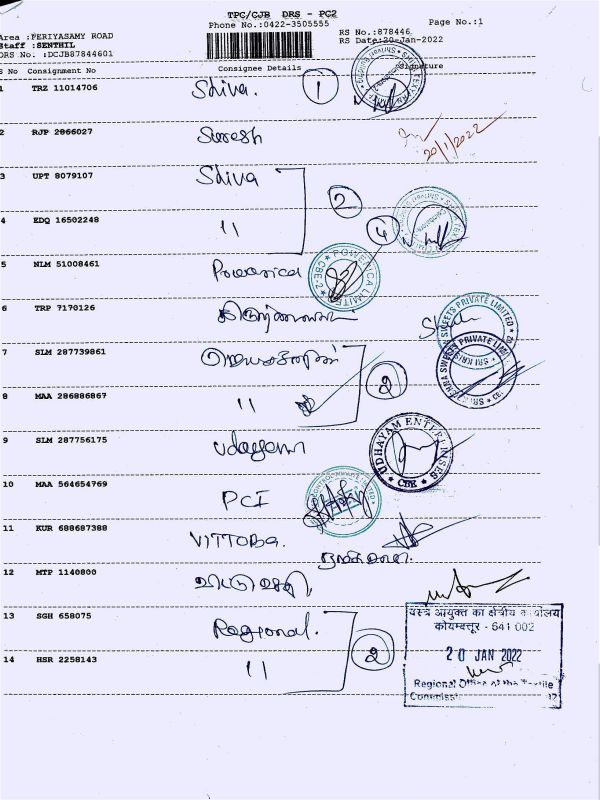 TPC/CJB DRS - PC2
Phone No.:0422-3505555
Page No.:1
Area :PERIYASAMY ROAD
RS No.:878446
Staff :SENTHIL
RS Date:20-Jan-2022
DRS No. :DCJB87844601
S No Consignment No Consignee Details Signature
1 TRZ 11014706 Shiva. 1
2 RJP 2866027 Suresh 20/1/2022
3 UPT 8079107 Shiva 2
4 EDQ 16502248 11 4
5 NLM 51008461 Powerica
POWERICA LIMITED CBE-2
6 TRP 7170126
SWEETS PRIVATE LIMITED
7 SLM 287739861 2
8 MAA 286886867 11
9 SLM 287756175 Udayam
UDHAYAM ENTERPRISES CBE
10 MAA 564654769 PCI
11 KUR 688687388 VITTOBA.
12 MTP 1140800
13 SGH 658075 Regional.
14 HSR 2258143 11 2
वस्त्र आयुक्त का क्षेत्रीय कार्यालय
कोयम्बत्तूर - 641 002
20 JAN 2022
Regional Office of the Textile